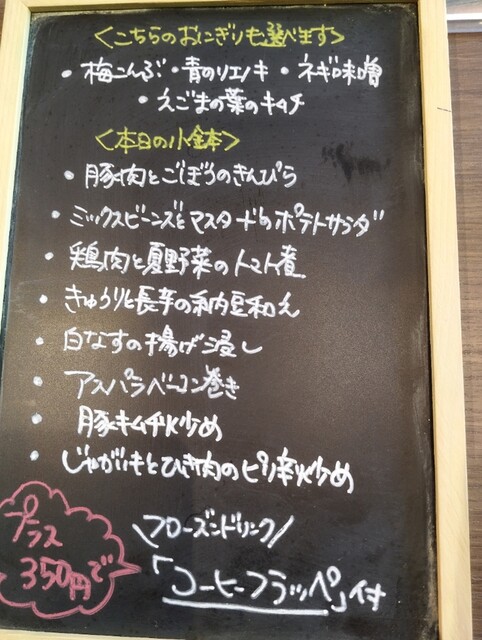 ＜こちらのおにぎりも選べます＞
・梅こんぶ ・青のりエノキ ・ネギ味噌
・えごまの葉のキムチ
＜本日の小鉢＞
・豚肉とごぼうのきんぴら
・ミックスビーンズとマスタードのポテトサラダ
・鶏肉と夏野菜のトマト煮
・きゅうりと長芋の納豆和え
・白なすの揚げ浸し
・アスパラベーコン巻き
・豚キムチ炒め
・じゃがいもとひき肉のピリ辛炒め
プラス
350円で
\フローズンドリンク/
「コーヒーフラッペ」付